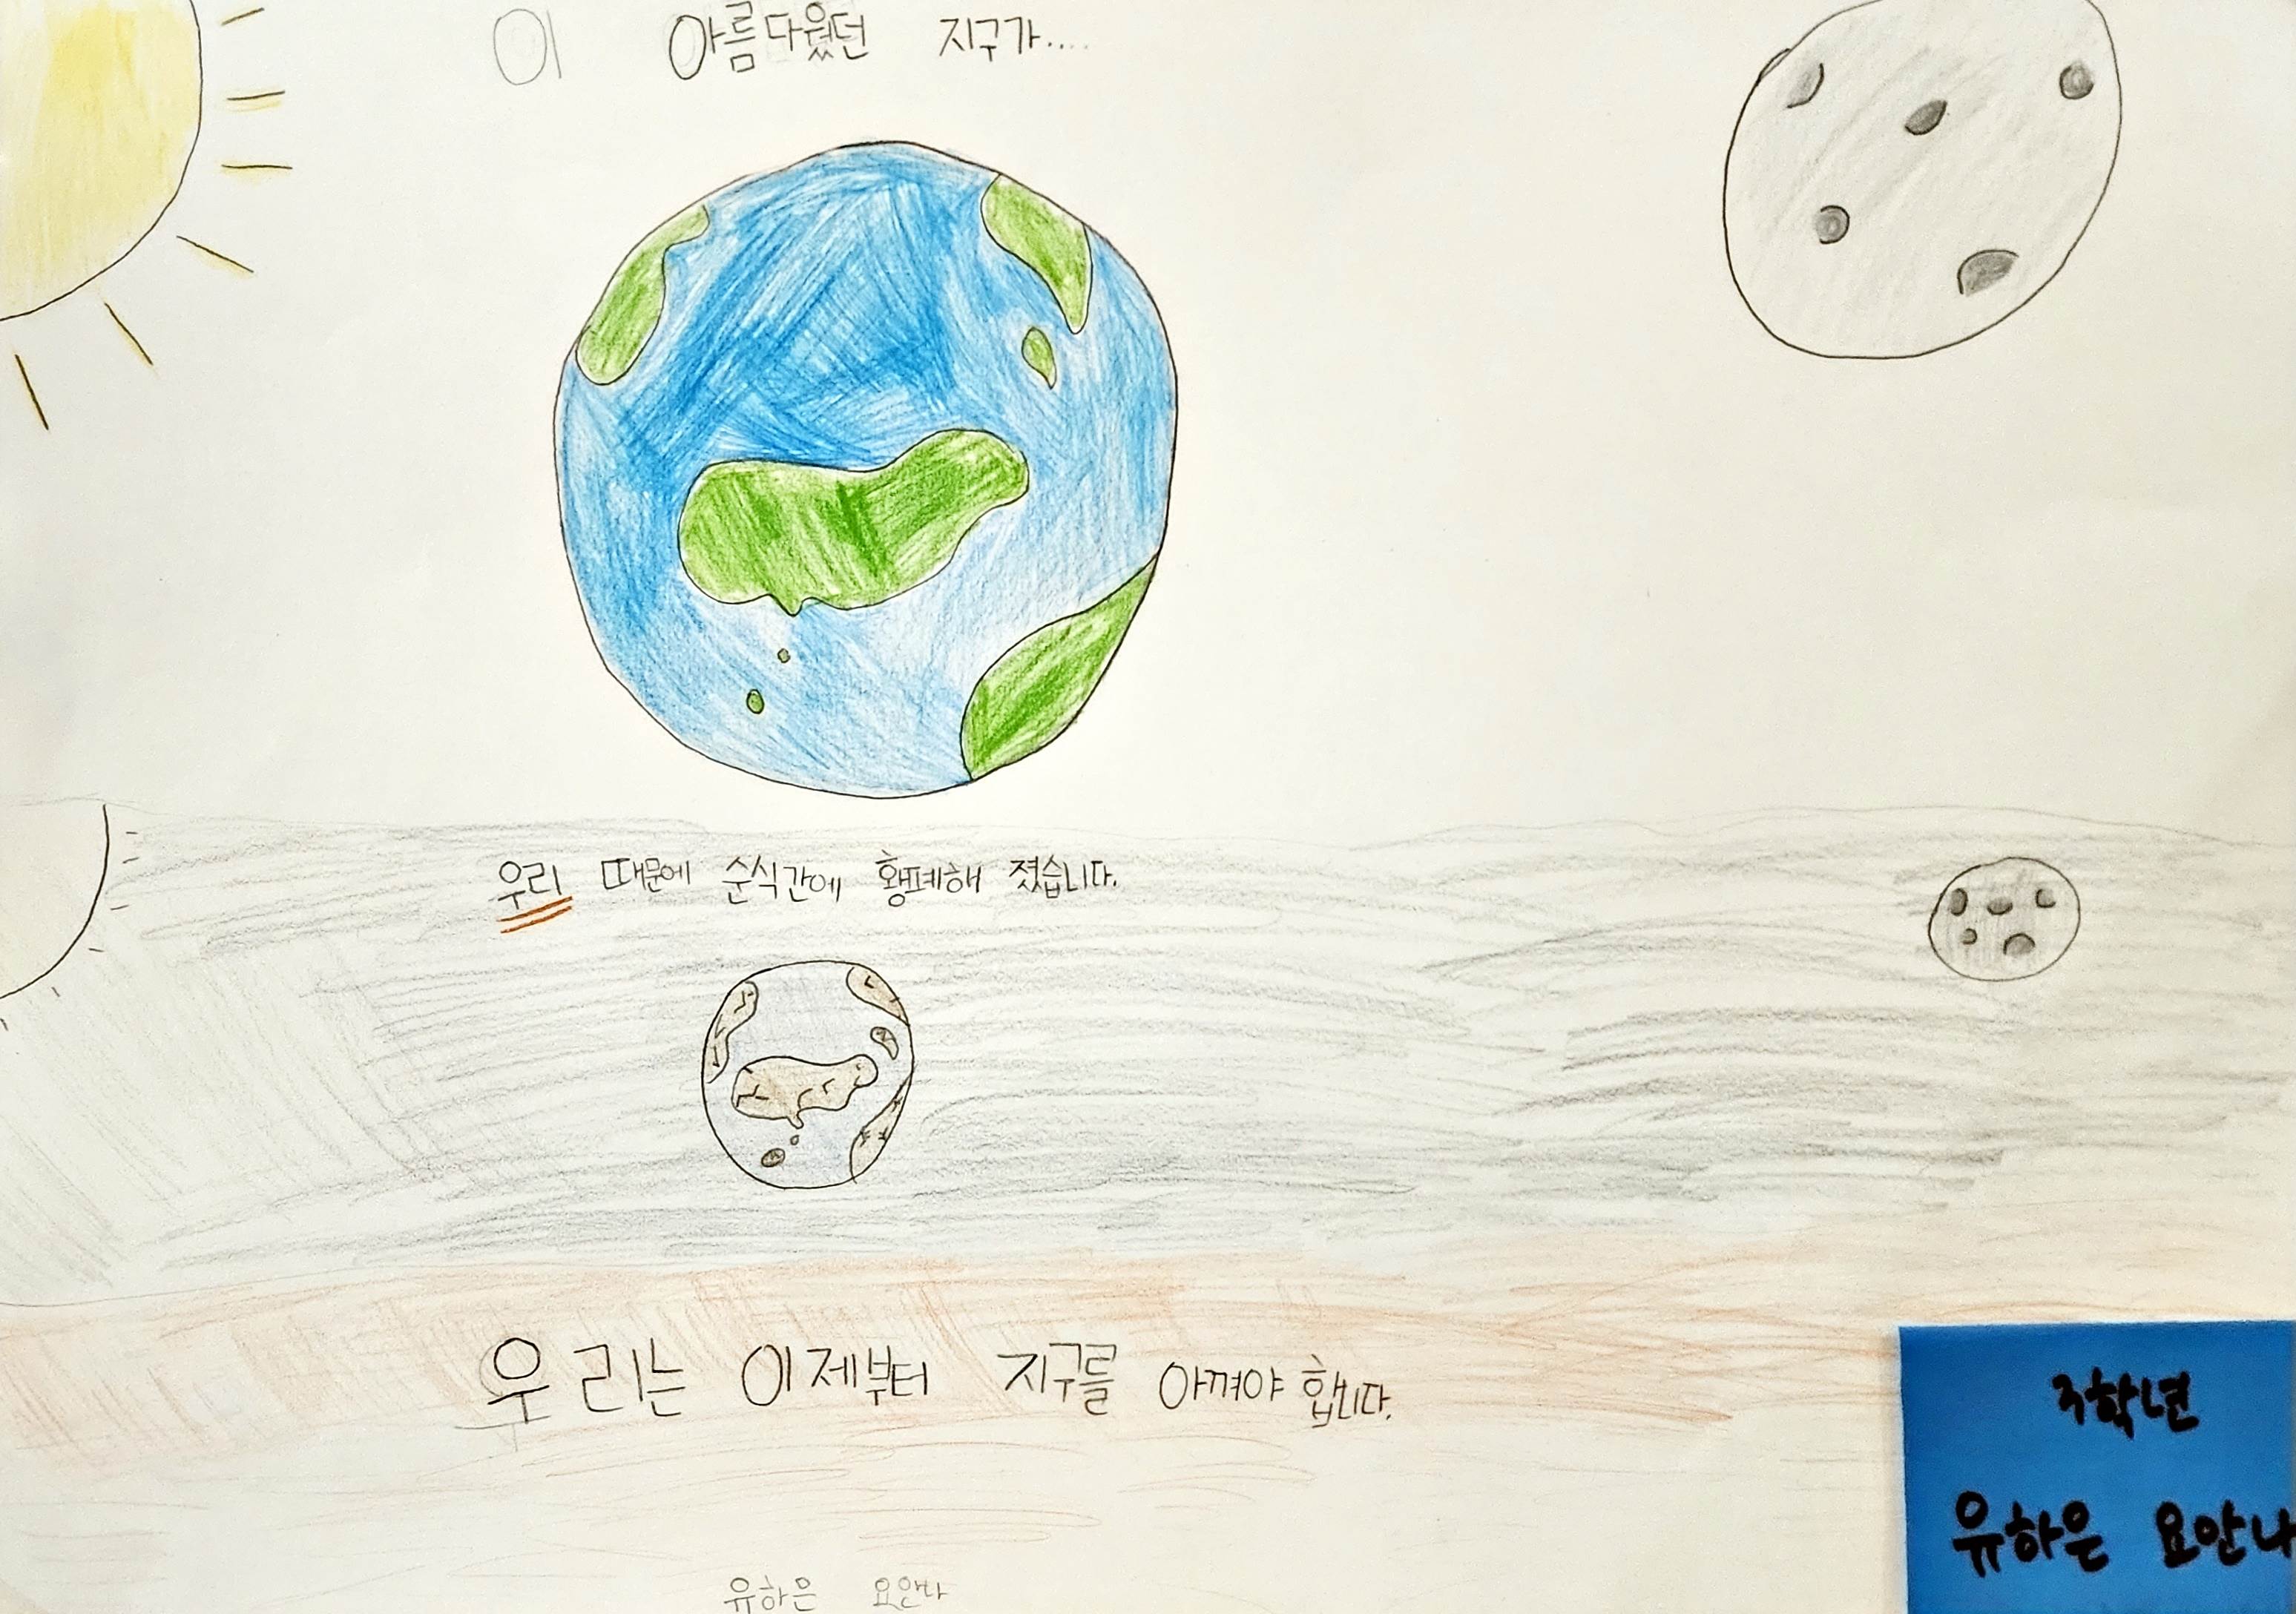 이 아름다웠던 지구가....
우리 때문에 순식간에 황폐해 졌습니다.
우리는 이제부터 지구를 아껴야 합니다.
유하은 요안나
3학년
유하은 요안나